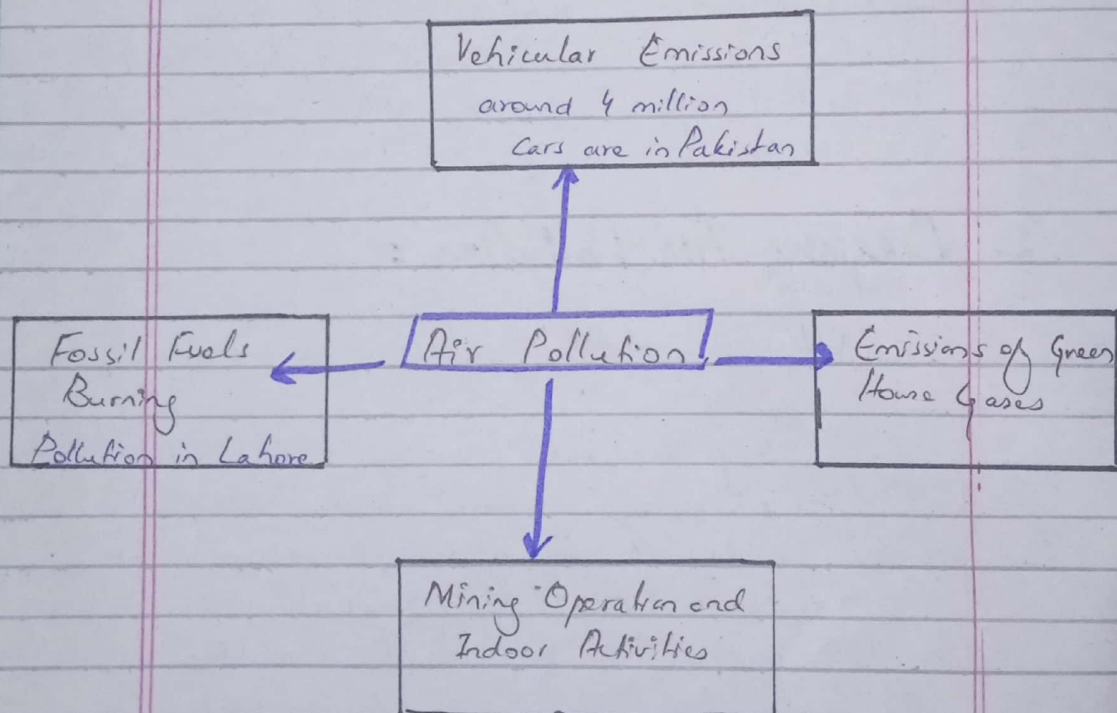 Vehicular Emissions
around 4 million
Cars are in Pakistan
Fossil Fuels
Burning
Pollution in Lahore
Air Pollution
Emissions of Green
House Gases
Mining Operation and
Indoor Activities